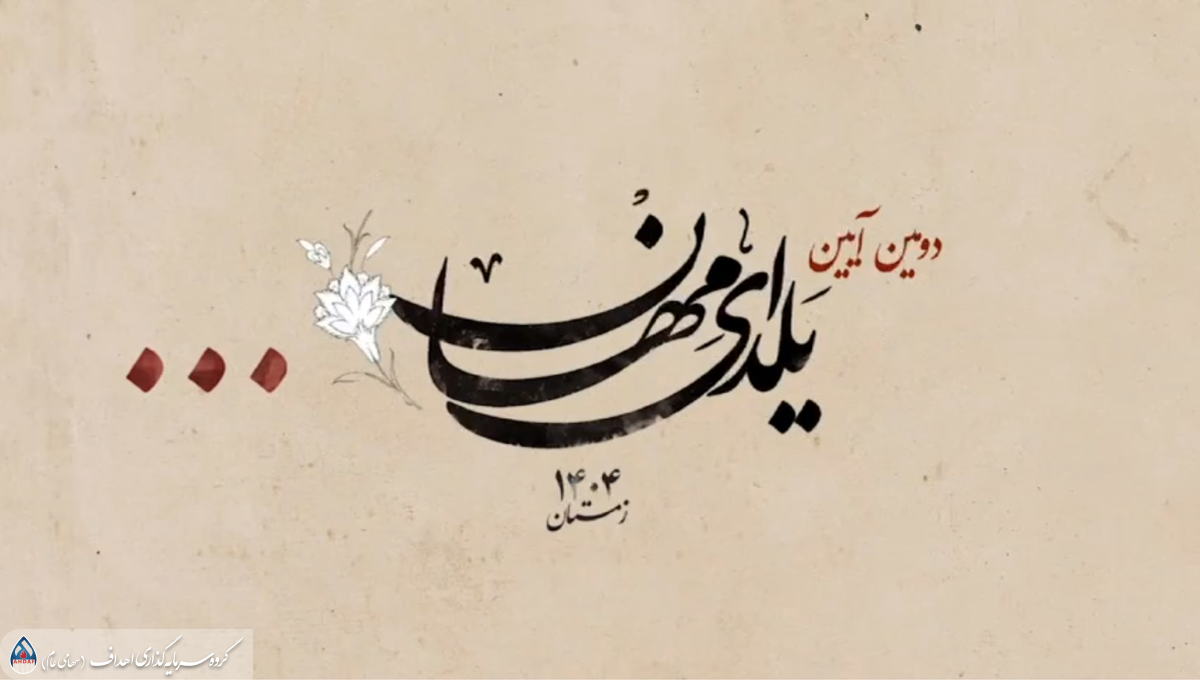 دومین آیین
یَلدایِ مِهان
۱۴۰۴
زمستان
گروه سرمایه گذاری اهداف (سهامی عام)
AHDAF